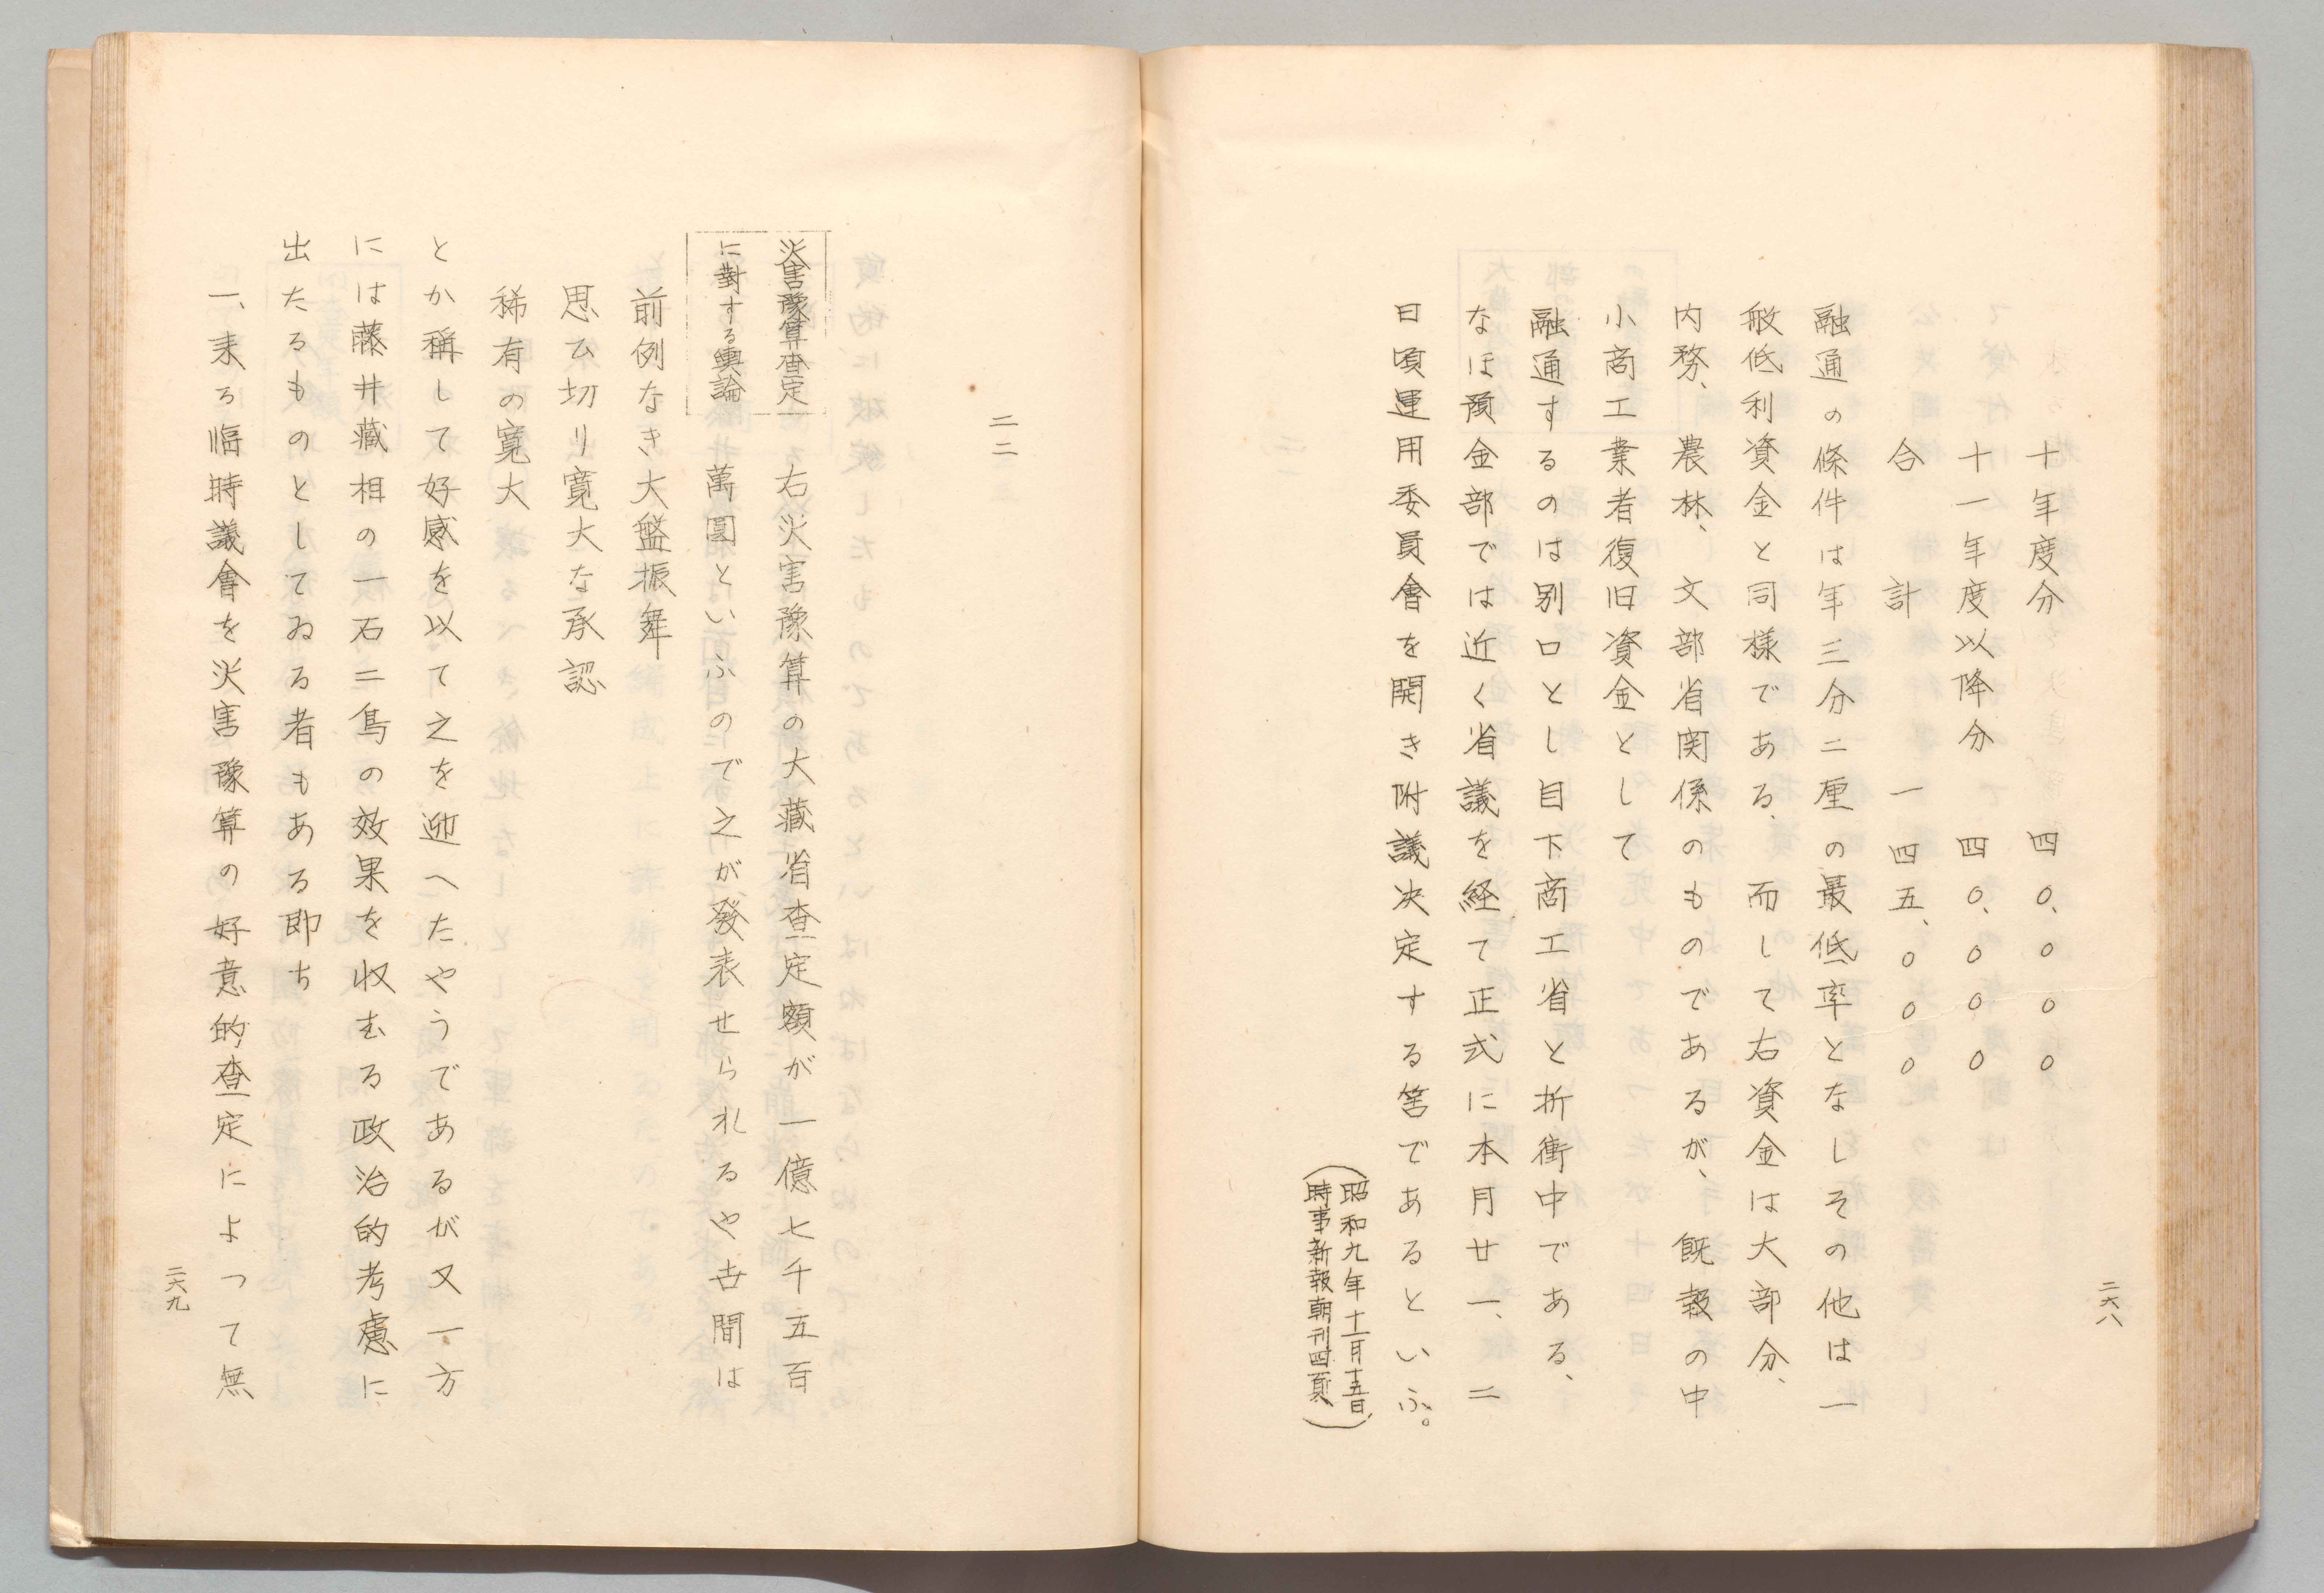 十年度分　四〇、〇〇〇
十一年度以降分　四〇、〇〇〇
合計　一四五、〇〇〇
融通の條件は年三分二厘の最低率となしその他は一
般低利資金と同様である、而して右資金は大部分、
内務、農林、文部省関係のものであるが、既報の中
小商工業者復旧資金として
融通するのは別口とし目下商工省と折衝中である、
なほ預金部では近く省議を経て正式に本月廿一、二
日頃運用委員會を開き附議決定する筈であるといふ。
（昭和九年十一月十五日、
時事新報朝刊四頁）
二六八
二二
災害豫算査定
に對する輿論
右災害豫算の大藏省査定額が一億七千五百
萬圓といふので之が發表せられるや世間は
前例なき大盤振舞
思ひ切り寛大な承認
稀有の寛大
とか稱して好感を以て之を迎へたやうであるが又一方
には藤井藏相の一石二鳥の效果を収むる政治的考慮に
出たるものとしてゐる者もある即ち
一、来る臨時議會を災害豫算の好意的査定によつて無
二六九